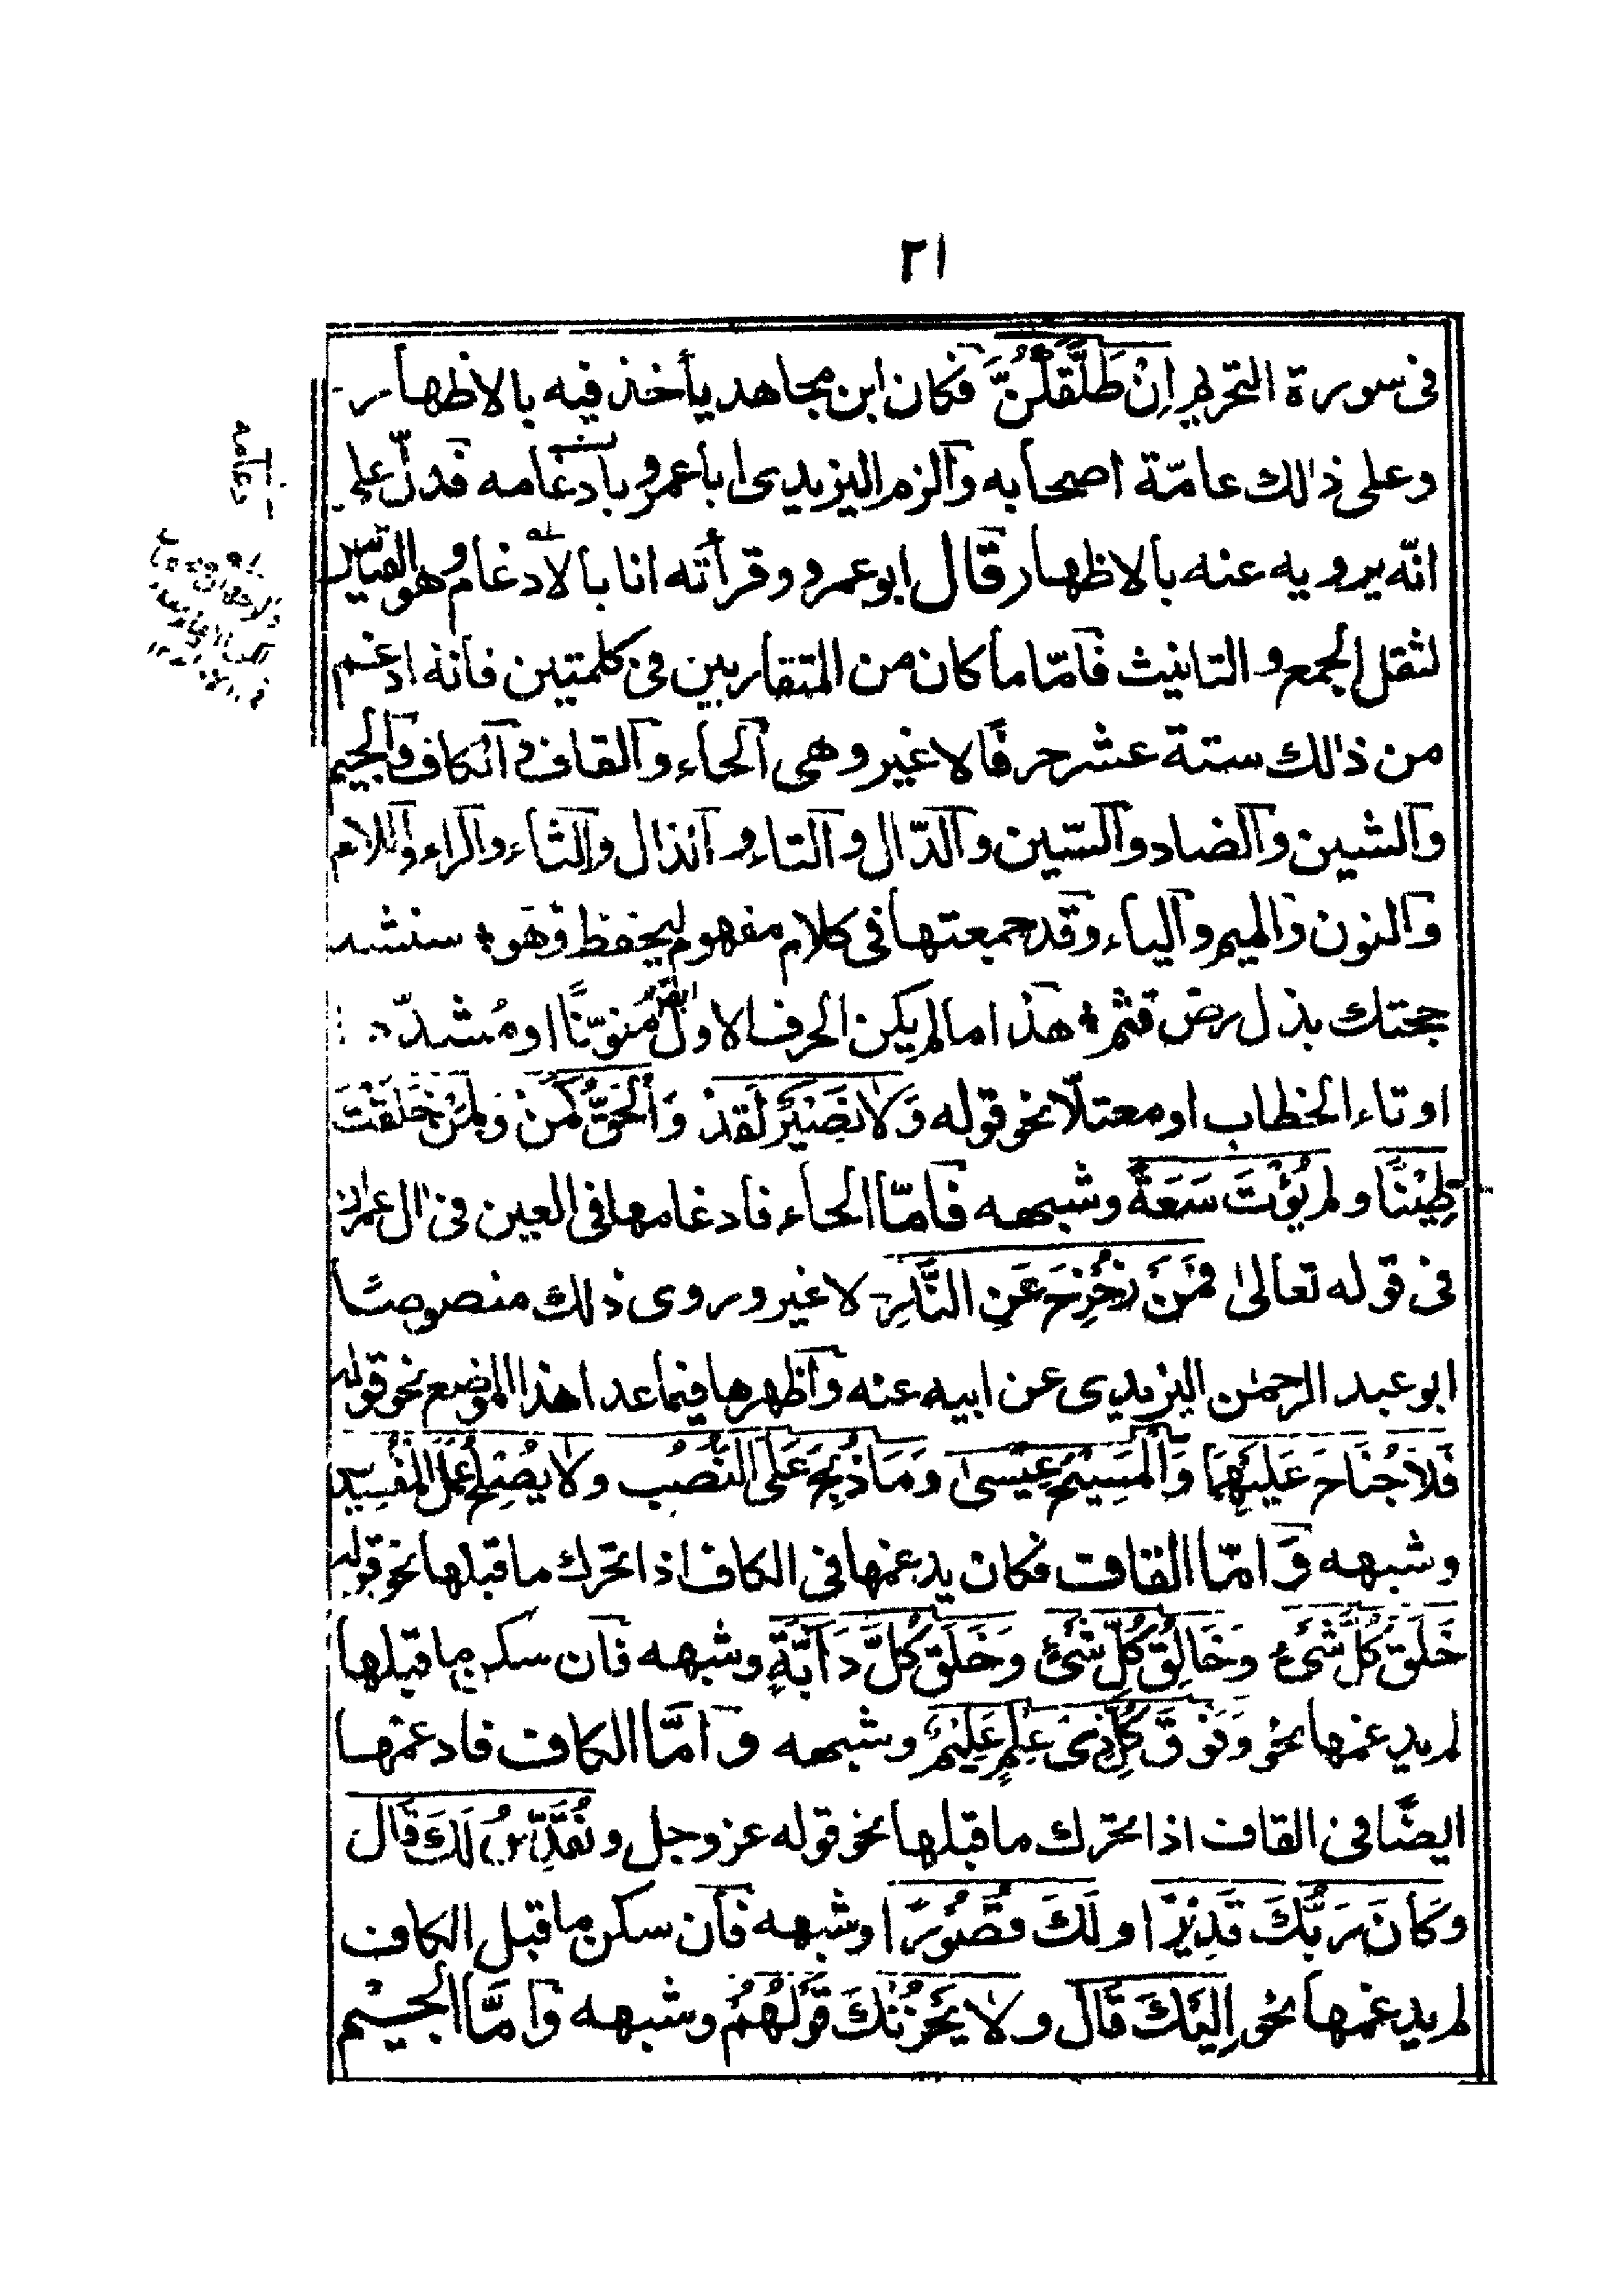 ٢١
فى سورة التحريم اِنْ طَلَّقَكُنَّ فكان ابن مجاهد يأخذ فيه بالاظهار
وعلى ذٰلك عامّة اصحابه وألزم اليزيدى ابا عمرو بادغامه فدلّ على
انّه يرويه عنه بالاظهار قال ابو عمرو وقرأته انا بالادغام وهو القياس
لثقل الجمع والتانيث فامّا ما كان من المتقاربين فى كلمتين فانه ادغم
من ذٰلك ستة عشر حرفًا لا غير وهى الحاء والقاف والكاف والجيم
والشين والضاد والسّين والدّال والتاء والذال والثاء والراء واللام
والنون والميم والباء وقد جمعتها فى كلام مفهوم ليحفظ وهو سنشد
حجتك بذل رض قثم هذا ما لم يكن الحرف الاول منوّنًا او مُشدّد
او تاء الخطاب او معتلّا نحو قوله وَلَا نَصِيْرٍ لَقَدْ وَالْحَقُّ كَمَنْ وَلِمَنْ خَلَقْتَ
طِيْنًا ولم يُؤْتَ سَعَةً وشبهه فامّا الحاء فادغامها فى العين فى اٰل عمران
فى قوله تعالىٰ فَمَنْ زُحْزِحَ عَنِ النَّارِ لا غير وروى ذٰلك منصوصًا
ابو عبد الرحمٰن اليزيدى عن ابيه عنه واظهرها فيما عدا هذا الموضع نحو قوله
فَلَا جُنَاحَ عَلَيْهِمَا وَالْمَسِيْحُ عِيْسىٰ وَمَا ذُبِحَ عَلَى النُّصُبِ وَلَا يُصْلِحُ عَمَلَ الْمُفْسِدِيْنَ
وشبهه وَامّا القاف فكان يدغمها فى الكاف اذا تحرك ما قبلها نحو قوله
خَلَقَ كُلَّ شَىْءٍ وَخَالِقُ كُلِّ شَىْءٍ وَخَلَقَ كُلَّ دَآبَّةٍ وشبهه فان سكن ما قبلها
لم يدغمها نحو وَفَوْقَ كُلِّ ذِىْ عِلْمٍ عَلِيْمٌ وشبهه وَامَّا الكاف فادغمها
ايضًا فى القاف اذا تحرك ما قبلها نحو قوله عز وجل ونُقَدِّسُ لَكَ قَالَ
وَكَانَ رَبُّكَ قَدِيْرًا ولَكَ قُصُوْرًا وشبهه فان سكن ما قبل الكاف
لم يدغمها نحو اِلَيْكَ قَالَ وَلَا يَحْزُنْكَ قَوْلُهُمْ وشبهه وَامَّا الجيم